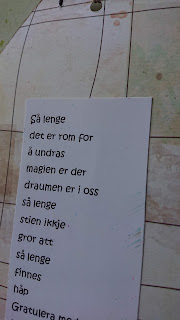 Så lenge
det er rom for
å undras
magien er der
draumen er i oss
så lenge
stien ikkje
gror att
så lenge
finnes
håp
Gratulera